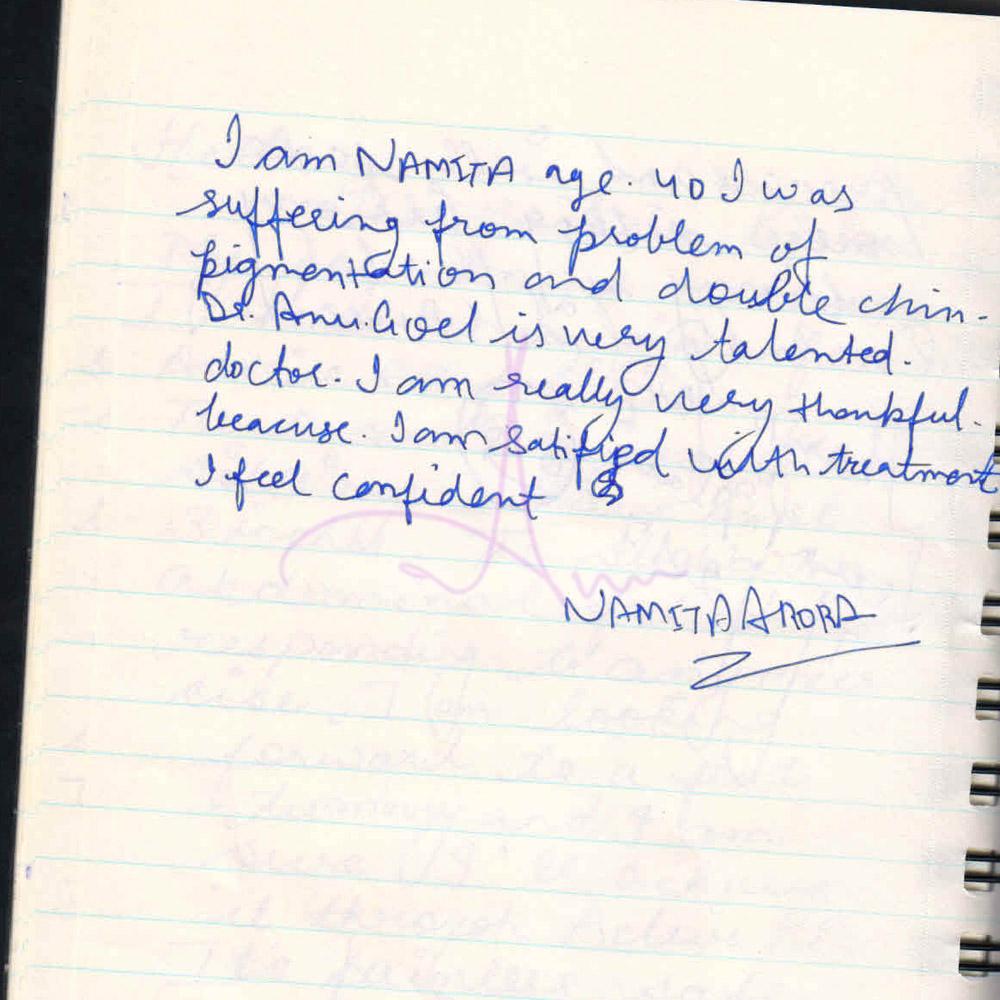 I am NAMITA age. 40 I was
suffering from problem of
pigmentation and double chin.
Dr. Anu. Goel is very talented.
doctor. I am really very thankful.
beacuse. I am satified with treatment
I feel confident
NAMITA ARORA